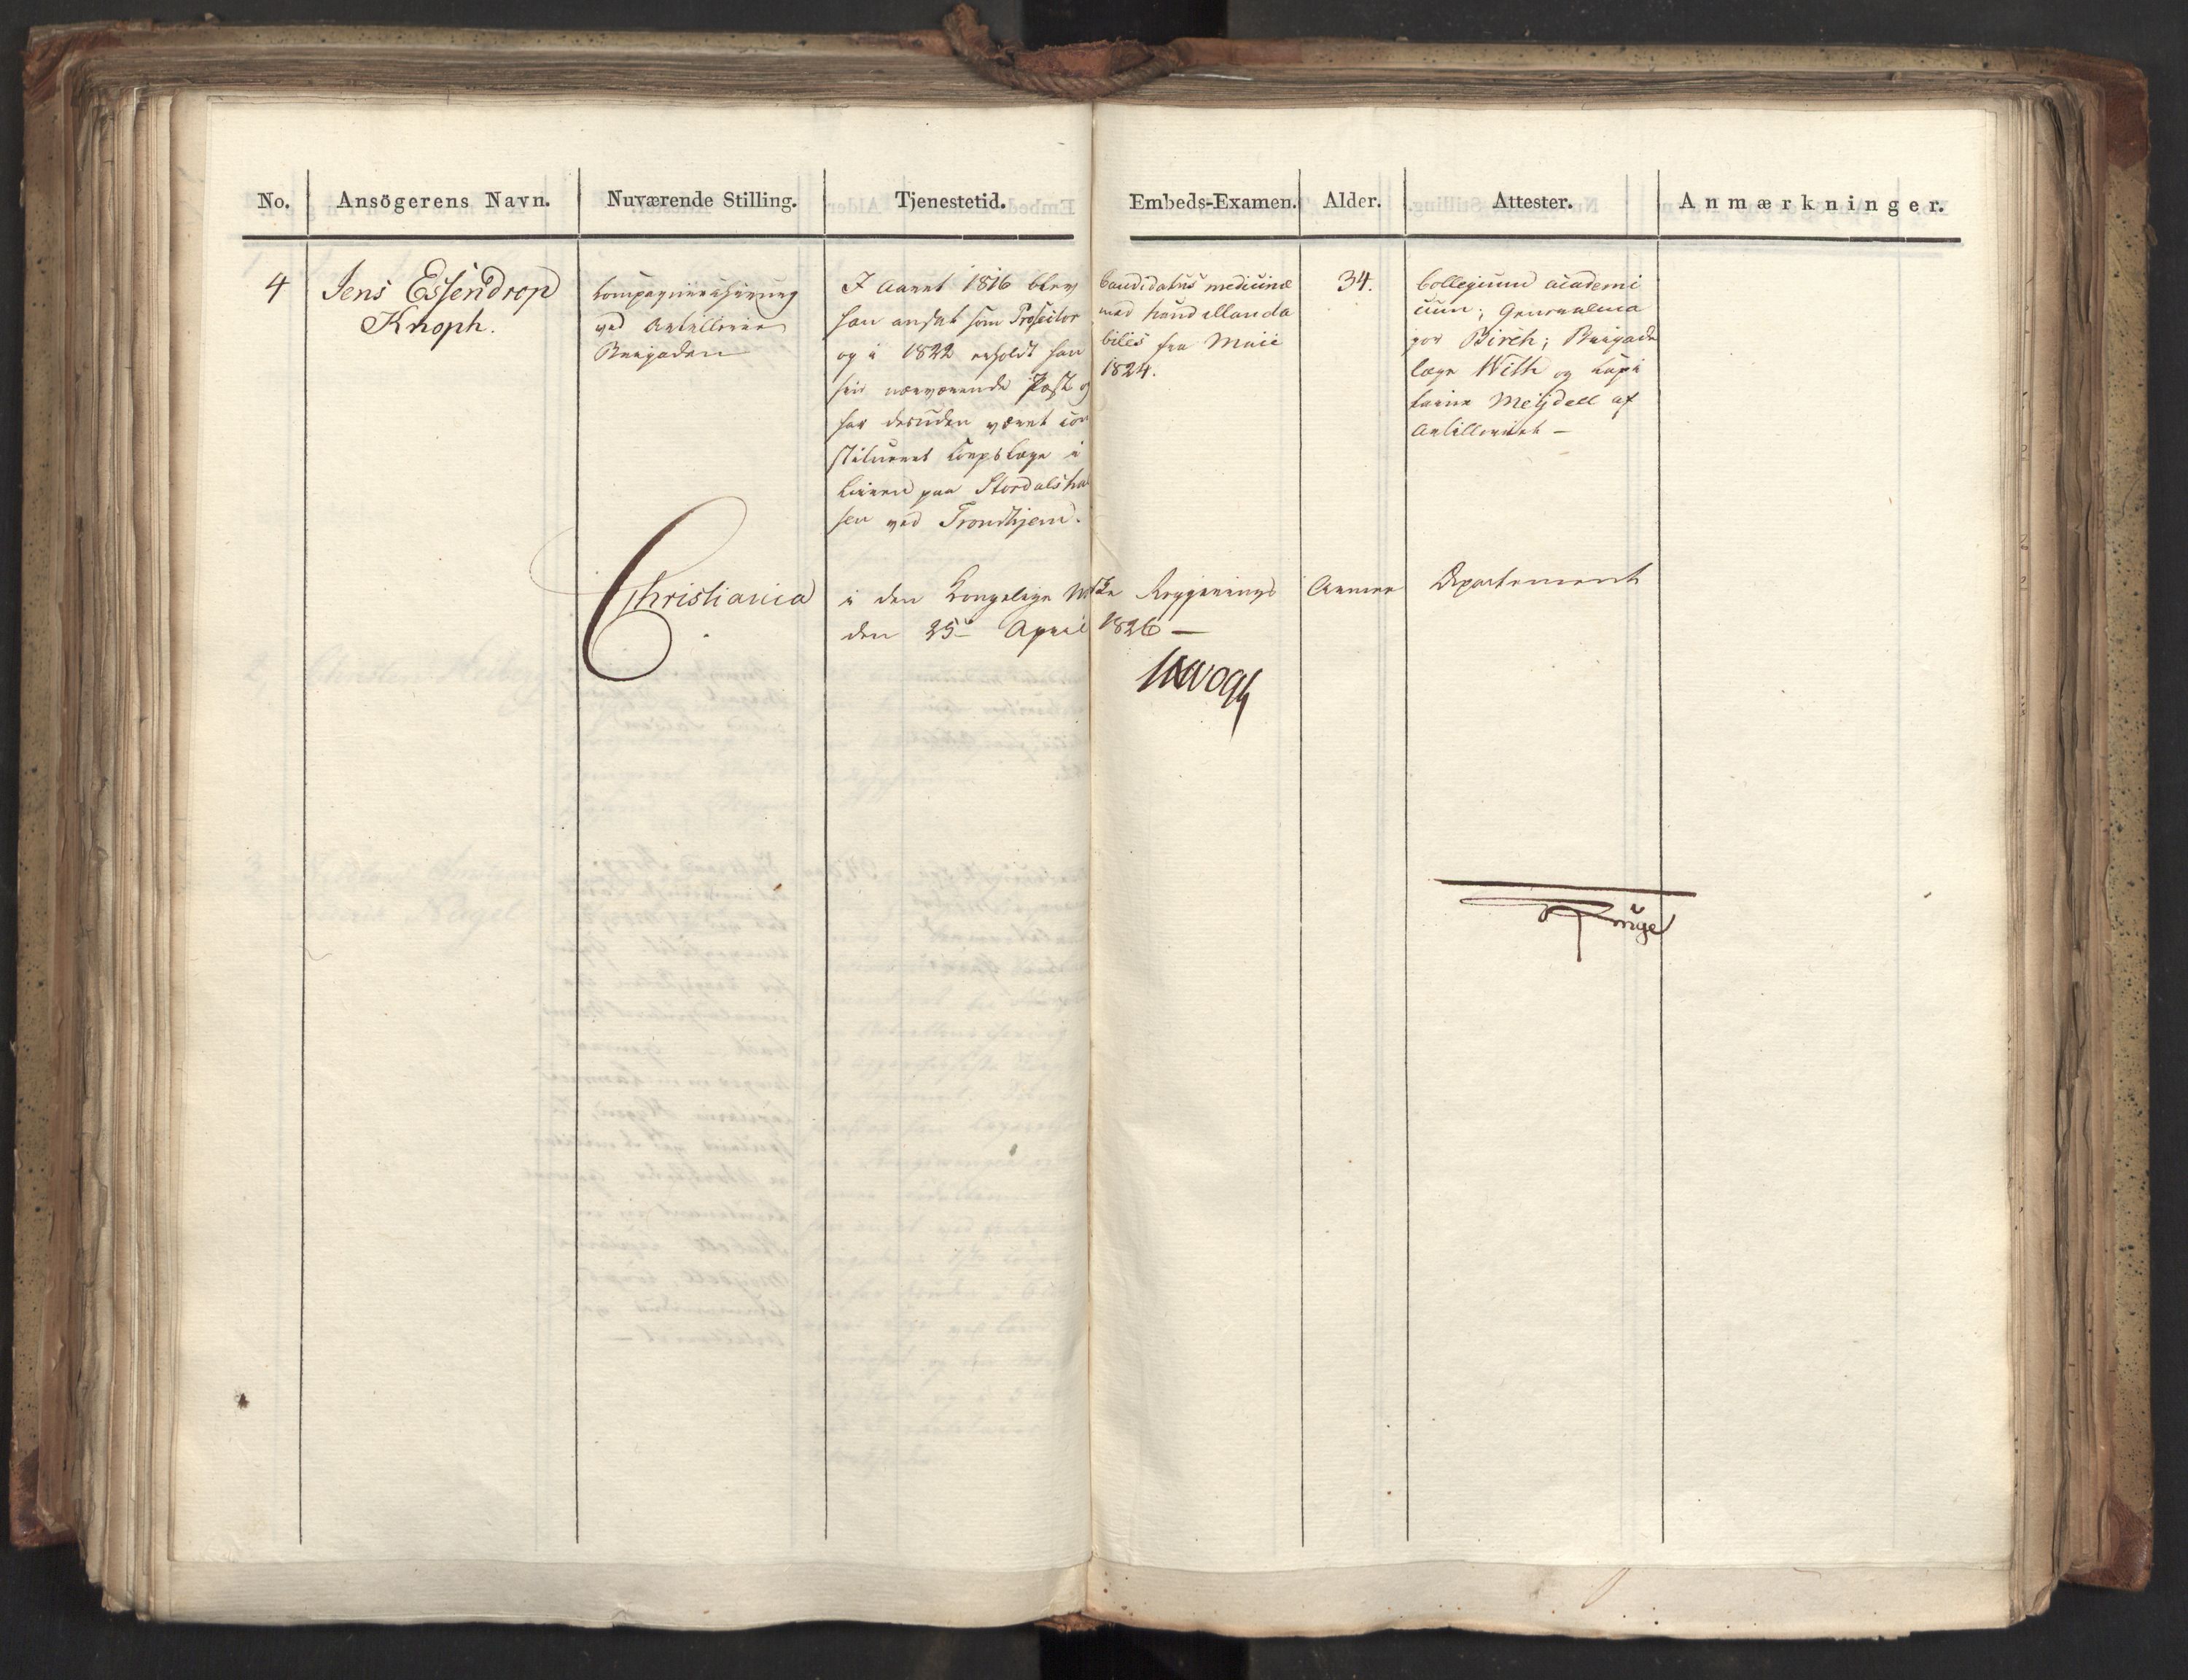 No. Ansögerens Navn. Nuværende Stilling. Tjenestetid. Embeds-Examen. Alder. Attester. Anmærkninger.
4
Jens Essendrop
Knoph.
Compagniechirurg
ved Artillerie
Brigaden
I Aaret 1816 blev
han ansat som Prosector
og i 1822 erholdt han
sin nærværende Post og
har desuden været con
stitueret Corpslæge i
Leiren paa Stordalsha
sen ved Trondhjem.
Candidatus medicinæ
med haud illauda
bilis fra Maii
1824.
34.
Collegium academi
cum; Generalma
jor Birch; Brigade
læge With og Capi
taine Meijdell af
Artilleriet —
Christiania i den Kongelige Norske Regjerings Annet Departement
den 25de April 1826 —
Krüger